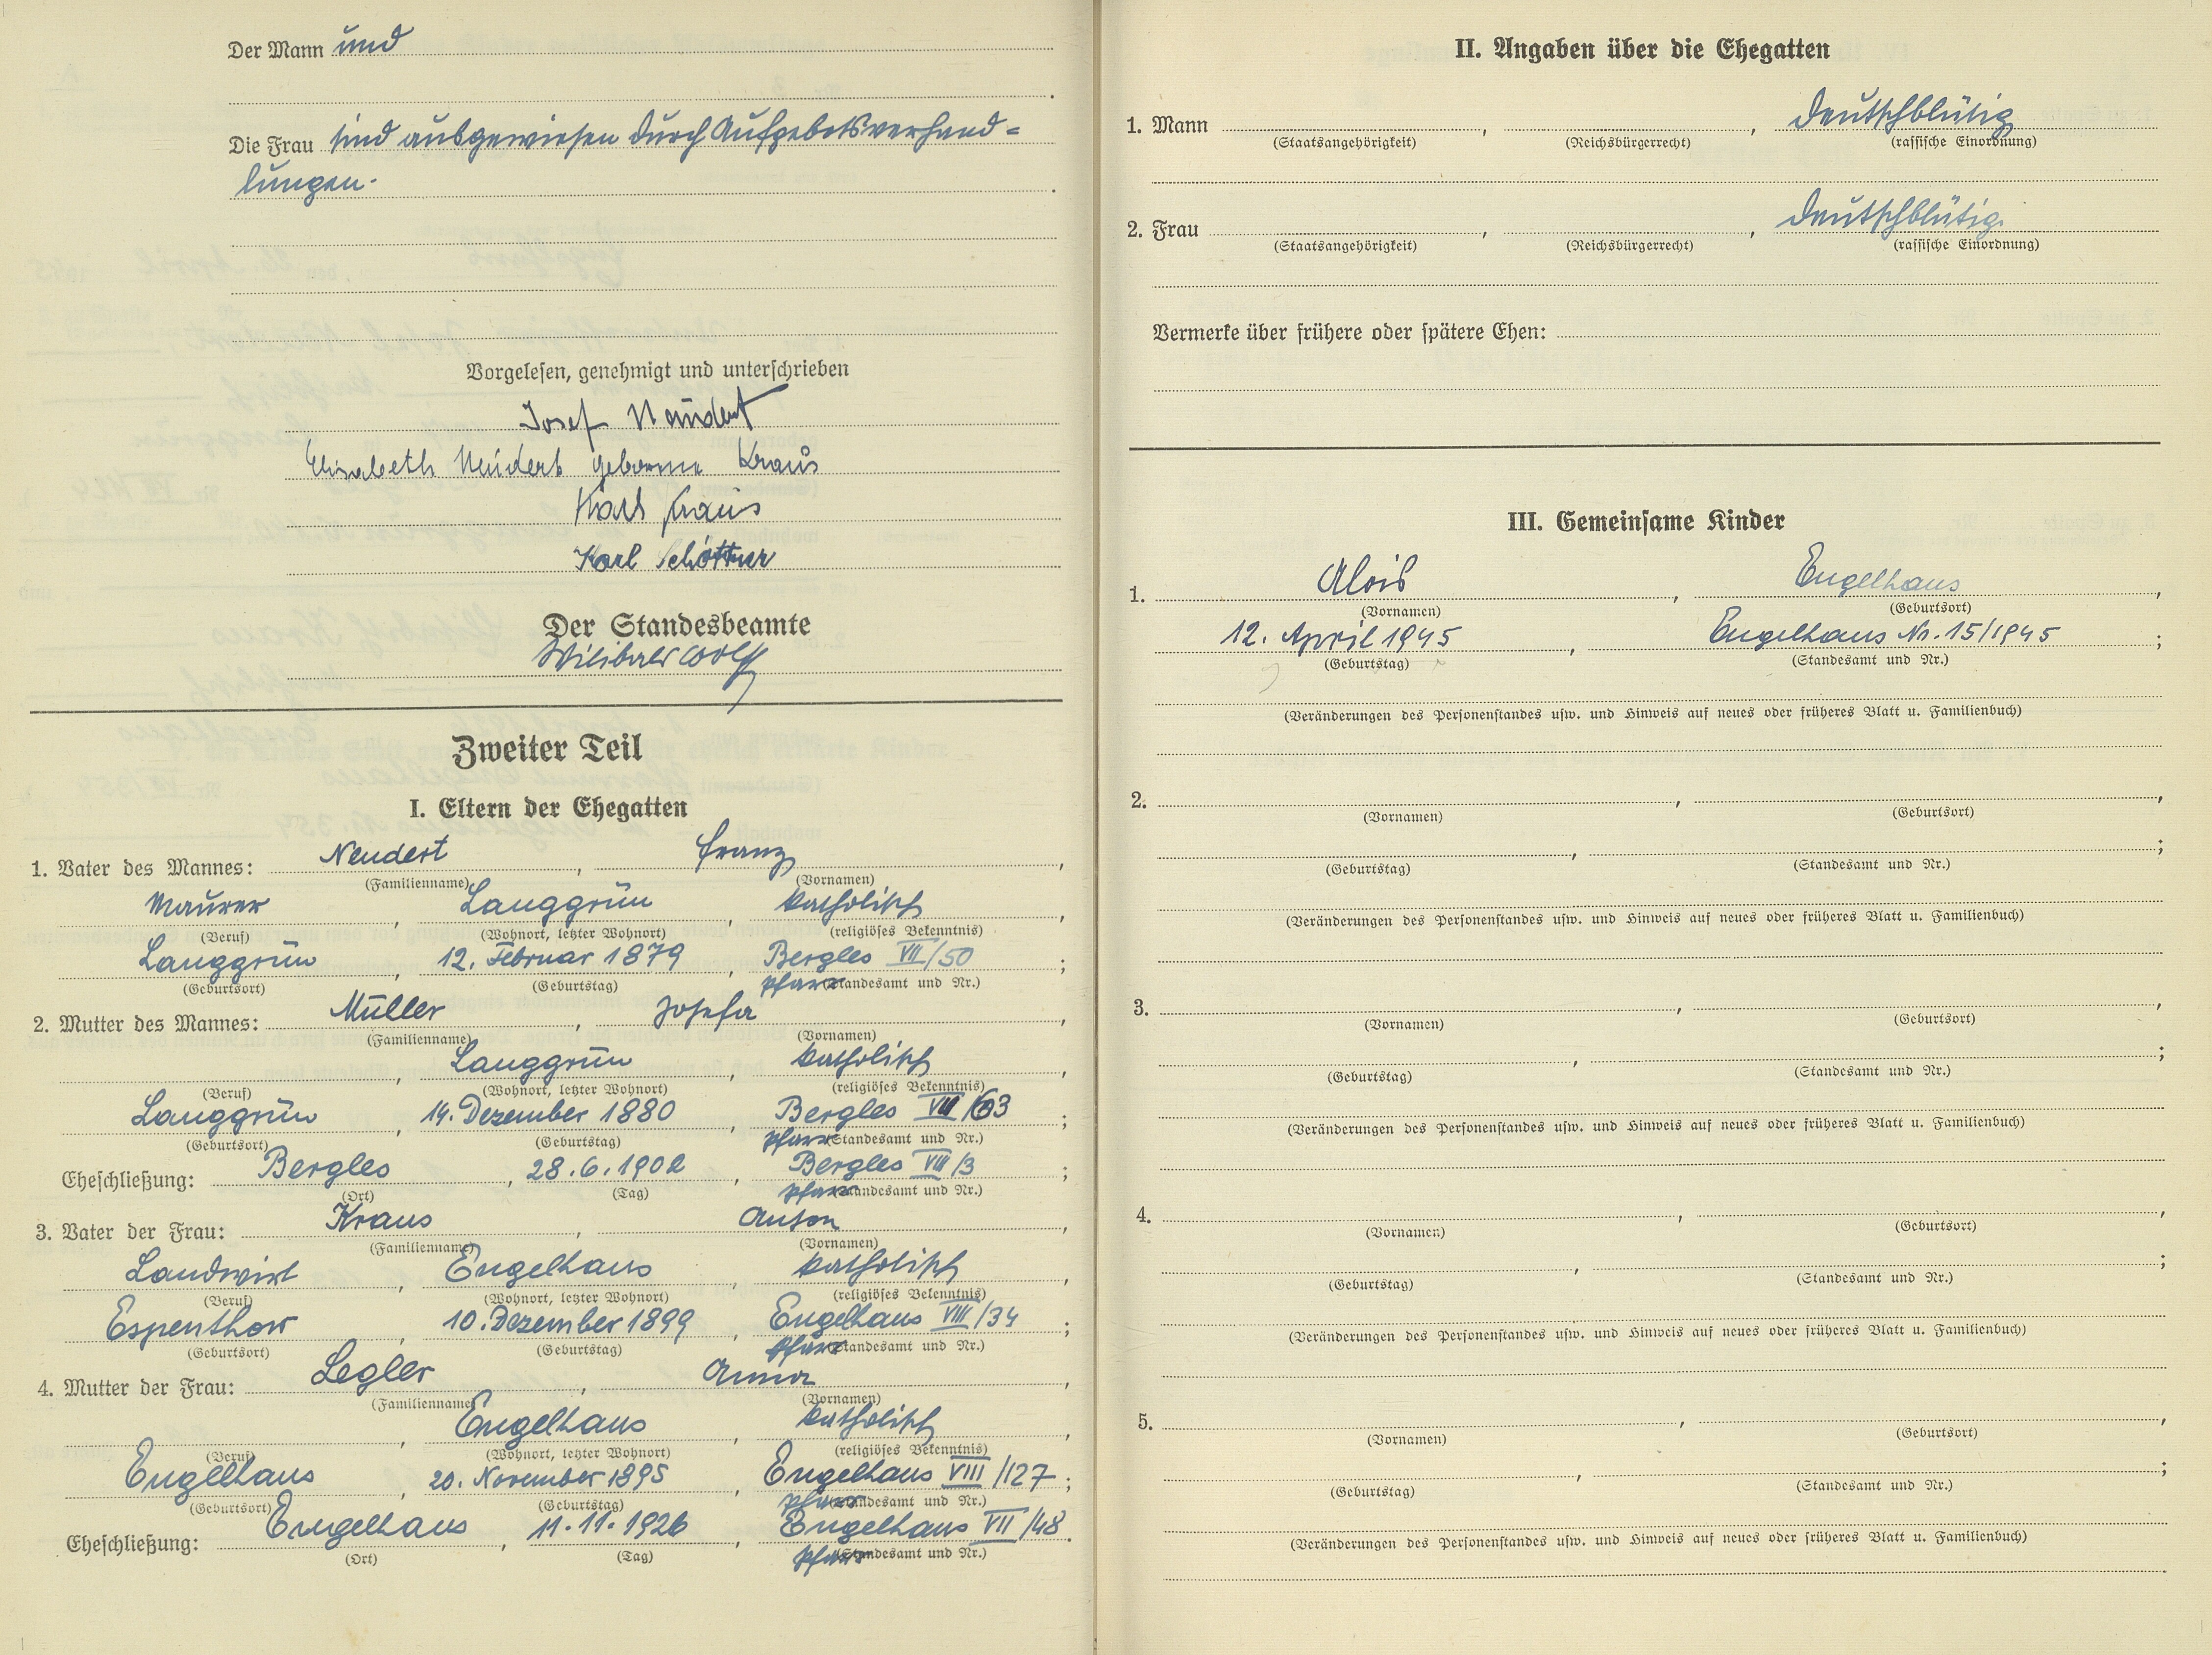 Der Mann und
Die Frau sind ausgewiesen durch Aufgebotsverhand=
lungen.
Vorgelesen, genehmigt und unterschrieben
Josef Neudert
Elisabeth Neudert geborene Kraus
Karl Kraus
Karl Schöttner
Der Standesbeamte
Wilibald Wolf
Zweiter Teil
I. Eltern der Ehegatten
1. Vater des Mannes: Neudert, Franz,
(Familienname) (Vornamen)
Maurer, Langgrün, katholisch,
(Beruf) (Wohnort, letzter Wohnort) (religiöses Bekenntnis)
Langgrün, 12. Februar 1879, Bergles VII/50;
(Geburtsort) (Geburtstag) Pfarr (Standesamt und Nr.)
2. Mutter des Mannes: Müller, Josefa,
(Familienname) (Vornamen)
, Langgrün, katholisch,
(Beruf) (Wohnort, letzter Wohnort) (religiöses Bekenntnis)
Langgrün, 14. Dezember 1880, Bergles VII/63;
(Geburtsort) (Geburtstag) Pfarr (Standesamt und Nr.)
Eheschließung: Bergles, 28.6.1902, Bergles VII/3;
(Ort) (Tag) Pfarr (Standesamt und Nr.)
3. Vater der Frau: Kraus, Anton,
(Familienname) (Vornamen)
Landwirt, Engelhaus, katholisch,
(Beruf) (Wohnort, letzter Wohnort) (religiöses Bekenntnis)
Espenthor, 10. Dezember 1899, Engelhaus VIII/34;
(Geburtsort) (Geburtstag) Pfarr (Standesamt und Nr.)
4. Mutter der Frau: Legler, Anna
(Familienname) (Vornamen)
, Engelhaus, katholisch,
(Beruf) (Wohnort, letzter Wohnort) (religiöses Bekenntnis)
Engelhaus, 20. November 1895, Engelhaus VIII/127;
(Geburtsort) (Geburtstag) Pfarr (Standesamt und Nr.)
Eheschließung: Engelhaus, 11.11.1926, Engelhaus VII/48.
(Ort) (Tag) Pfarr (Standesamt und Nr.)
II. Angaben über die Ehegatten
1. Mann , , deutschblütig
(Staatsangehörigkeit) (Reichsbürgerrecht) (rassische Einordnung)
2. Frau , , deutschblütig.
(Staatsangehörigkeit) (Reichsbürgerrecht) (rassische Einordnung)
Vermerke über frühere oder spätere Ehen:
III. Gemeinsame Kinder
1. Alois, Engelhaus,
(Vornamen) (Geburtsort)
12. April 1945, Engelhaus Nr. 15/1945;
(Geburtstag) (Standesamt und Nr.)
(Veränderungen des Personenstandes usw. und Hinweis auf neues oder früheres Blatt u. Familienbuch)
2. , ,
(Vornamen) (Geburtsort)
, ;
(Geburtstag) (Standesamt und Nr.)
(Veränderungen des Personenstandes usw. und Hinweis auf neues oder früheres Blatt u. Familienbuch)
3. , ,
(Vornamen) (Geburtsort)
, ;
(Geburtstag) (Standesamt und Nr.)
(Veränderungen des Personenstandes usw. und Hinweis auf neues oder früheres Blatt u. Familienbuch)
4. , ,
(Vornamen) (Geburtsort)
, ;
(Geburtstag) (Standesamt und Nr.)
(Veränderungen des Personenstandes usw. und Hinweis auf neues oder früheres Blatt u. Familienbuch)
5. , ,
(Vornamen) (Geburtsort)
, ;
(Geburtstag) (Standesamt und Nr.)
(Veränderungen des Personenstandes usw. und Hinweis auf neues oder früheres Blatt u. Familienbuch)